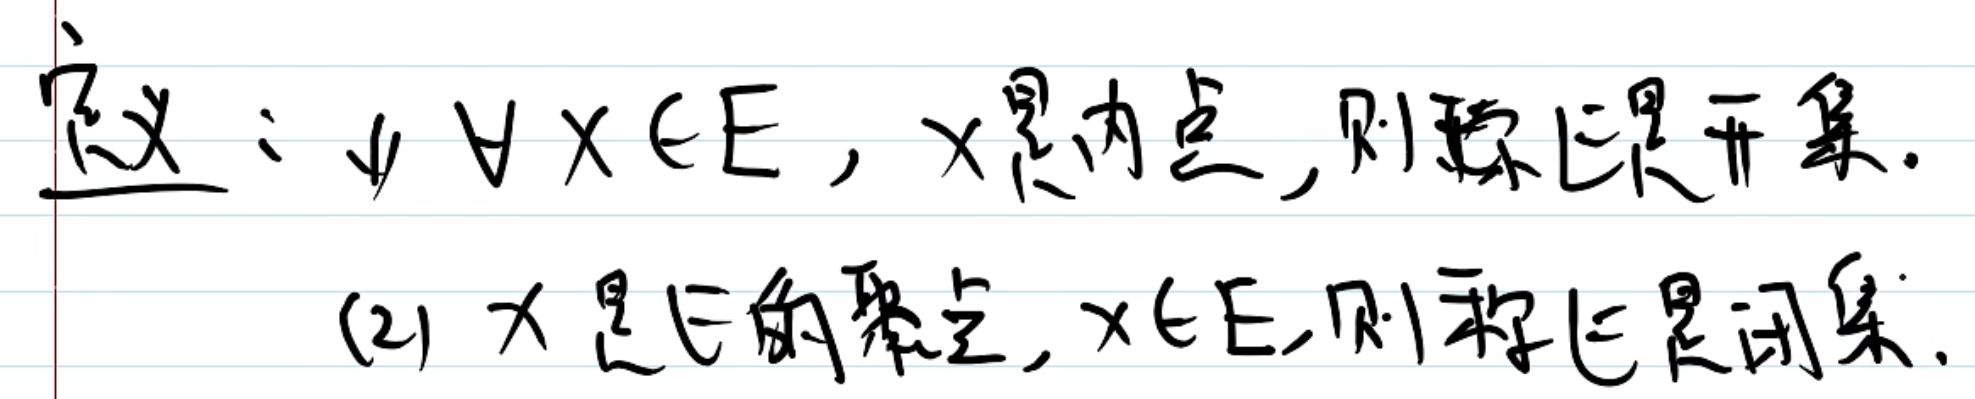 定义：(1) ∀ x∈E, x是内点,则称E是开集.
(2) x是E的聚点, x∈E,则称E是闭集.